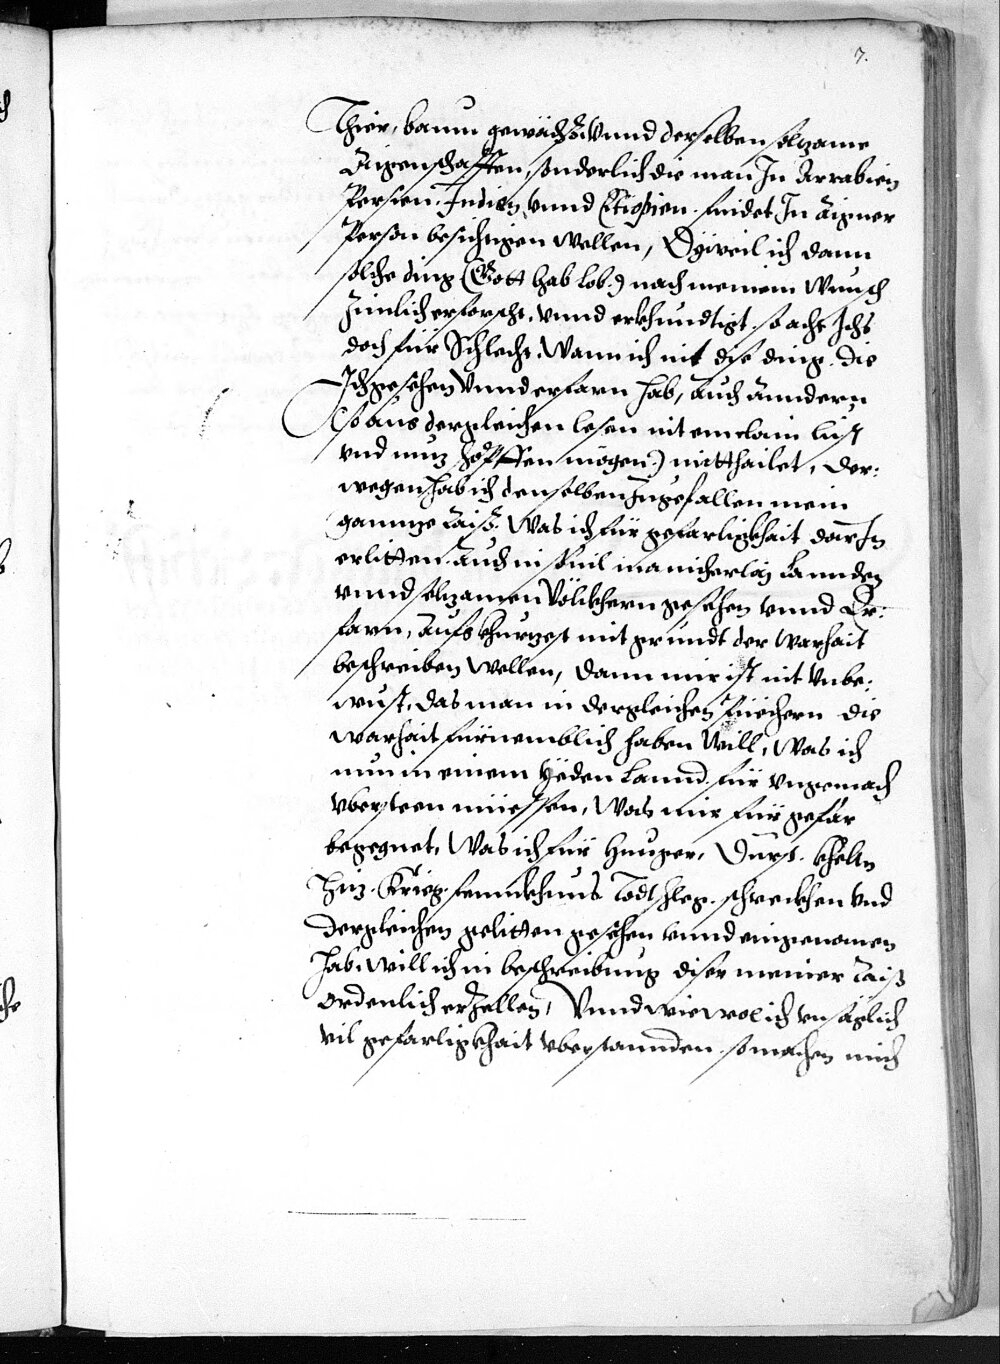 7.
Thier, baum gewächs vnnd derselben selzame
Aigenschafften, sonderlich die man In Arrabien
Persien. Indien, vnnd Etiopien. findet In aigner
Person besichtigen wellen, Dyweil ich dann
solche ding (Gott hab lob.) nach meinem Wunsch
Zimlich erforscht. vnnd erkhundtigt. so acht Ichs
doch für Schlecht. Wann ich nit dise ding. die
Ich gesehen vnnd erfarn hab, auch anndern
(so aus dergleichen lesen nit ein clain lust
vnd nuz schöpffen mögen.) mitthailet, der:
wegen hab ich denselben zugefallen mein
gannnze Raiß. Was ich für gefarligkhait darIn
erlitten. Auch in souil manicherlaj Lannden
vnnd selzamen Völckhern gesehen vnnd Er:
farn, aufs khurzest mit grundt der warhait
beschreiben wellen, dann mir ist nit vnbe:
wust, das man in dergleichen Püechern die
warhait fürnemblich haben will, Was ich
nun in einem yeden Lannd. für vngemach
vbersteen müessen, Was mir für gefar
begegnet, Was ich für Hunger, Durst. khelten
Hiz. Krieg. fennkhnus Todtschleg. schreckhen vnd
dergleichen gelitten gesehen vnnd eingenomen
hab, will ich in beschreibung diser meiner Raiß
ordenlich erzellen, Vnnd wiewol ich vnsäglich
vil gefarligkhait vberstannden. so machen mich